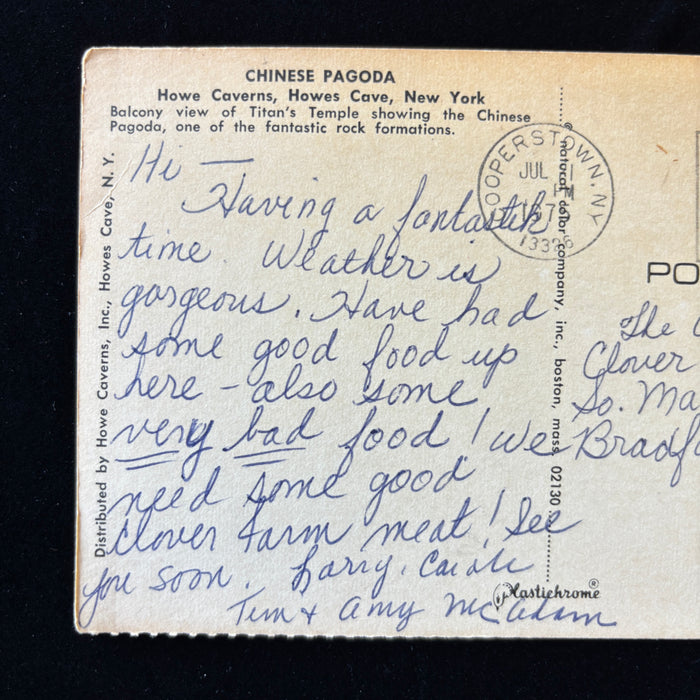 CHINESE PAGODA
Howe Caverns, Howes Cave, New York
Balcony view of Titan's Temple showing the Chinese
Pagoda, one of the fantastic rock formations.
Hi —
Having a fantastik
time. Weather is
gorgeous. Have had
some good food up
here - also some
very bad food! We
need some good
Clover Farm meat! See
you soon. Larry, Carole
Tim + Amy McAdam
Distributed by Howe Caverns, Inc., Howes Cave, N. Y.
COOPERSTOWN, NY
JUL
PM
1332
natural color company, inc., boston, mass. 02130
Plastichrome®
PO
The
Clover
So. Ma
Bradf